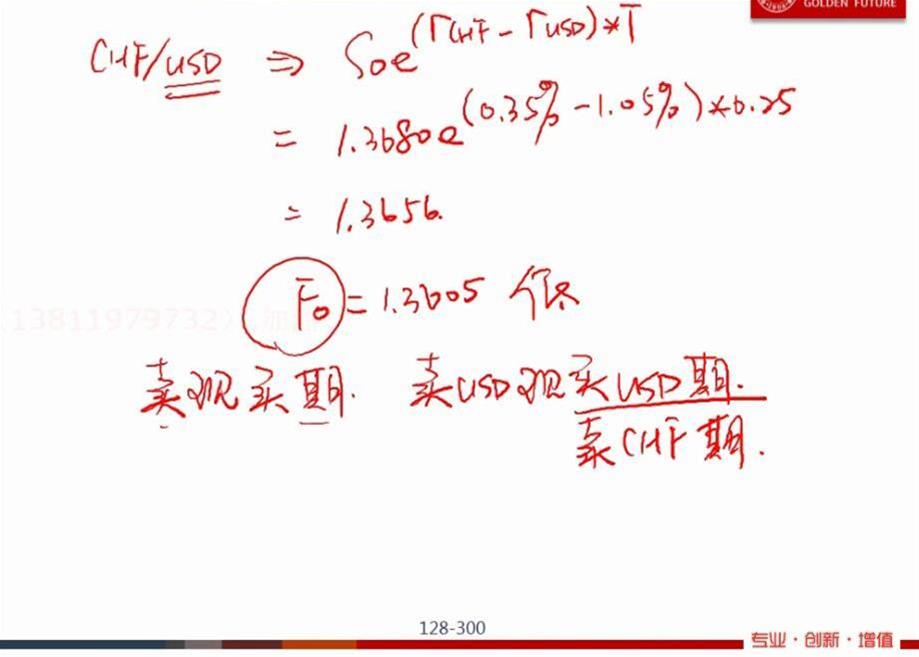 GOLDEN FUTURE
CHF/USD ⇒ S0e^(rCHF - rUSD)*T
= 1.3680e^(0.35% - 1.05%)*0.25
= 1.3656.
F0 = 1.3605 低
(13811979732)
卖现买期. 卖USD现买USD期.
卖CHF期.
128-300
专业·创新·增值